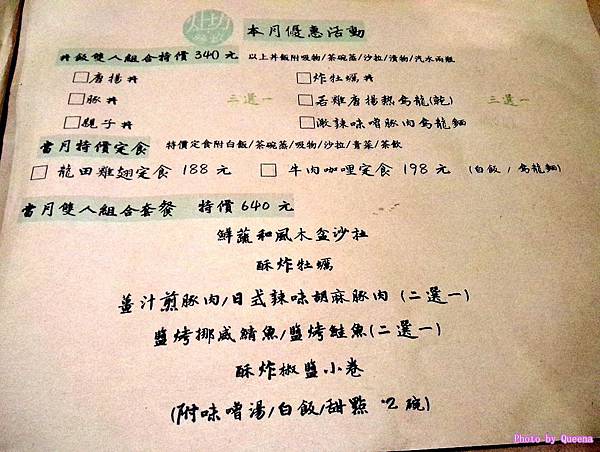 本月優惠活動
丼飯雙人組合特價 340 元 以上丼飯附吸物/茶碗蒸/沙拉/漬物/汽水兩瓶
唐揚丼 炸牡蠣丼
豚丼 三選一 若雞唐揚熱烏龍(乾) 三選一
親子丼 激辣味噌豚肉烏龍麵
當月特價定食 特價定食附白飯/茶碗蒸/吸物/沙拉/青菜/茶飲
龍田雞翅定食 188 元 牛肉咖哩定食 198 元 (白飯 / 烏龍麵)
當月雙人組合套餐 特價 640 元
鮮蔬和風木盆沙拉
酥炸牡蠣
薑汁煎豚肉/日式辣味胡麻豚肉 (二選一)
鹽烤挪威鯖魚/鹽烤鮭魚(二選一)
酥炸椒鹽小卷
(附味噌湯/白飯/甜點 *2 碗)
Photo by Queena